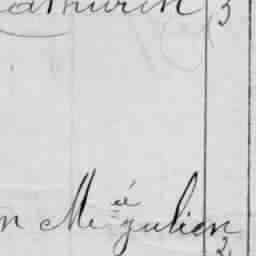 athurin 3
n Mie Julien
2